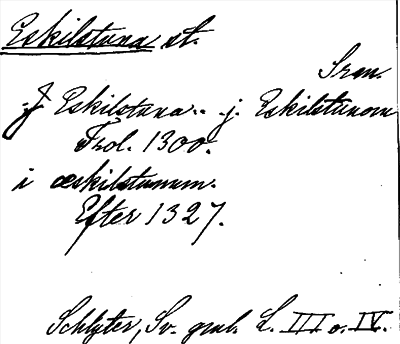 Eskilstuna st.
Srm.
J Eskilstuna.. j. Eskilstunom
Frol. 1300.
i æskilstunum.
Efter 1327.
Schlyter, Sv. gml. L. III o. IV.